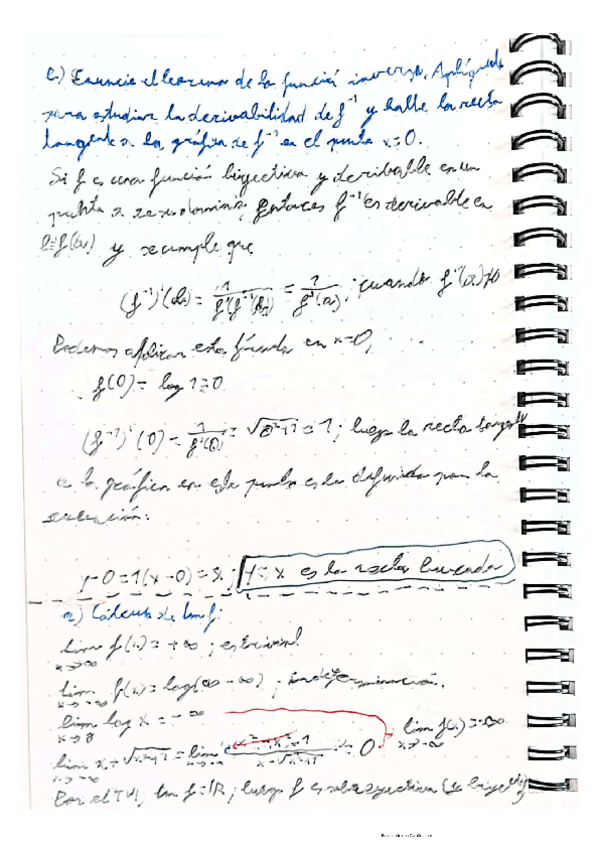 c) Enuncie el teorema de la función inversa. Aplíquelo
para estudiar la derivabilidad de f⁻¹ y halle la recta
tangente a la gráfica de f⁻¹ en el punto x=0.
Si f es una función biyectiva y derivable en un
punto a de su dominio, entonces f⁻¹ es derivable en
b=f(a) y se cumple que
(f⁻¹)'(b) = 1/f'(f⁻¹(b)) = 1/f'(a) ; cuando f'(a)≠0
Podemos aplicar esta fórmula en x=0,
f(0) = log 1 = 0
(f⁻¹)'(0) = 1/f'(0) = √(0²+1) = 1 ; luego la recta tangente
a la gráfica en este punto es la definida por la
ecuación:
y-0=1(x-0)=x ; y=x es la recta buscada
a) Cálculo de Im f:
lim x→∞ f(x) = +∞ ; es trivial
lim x→-∞ f(x) = log(∞-∞) ; indeterminación.
lim x→0 log x = -∞
lim x→-∞ f(x) = -∞
lim x→-∞ x+√(x²+1) = lim x→-∞ / x-√(x²+1) = 0
Por el TVI, Im f = ℝ ; luego f es sobreyectiva